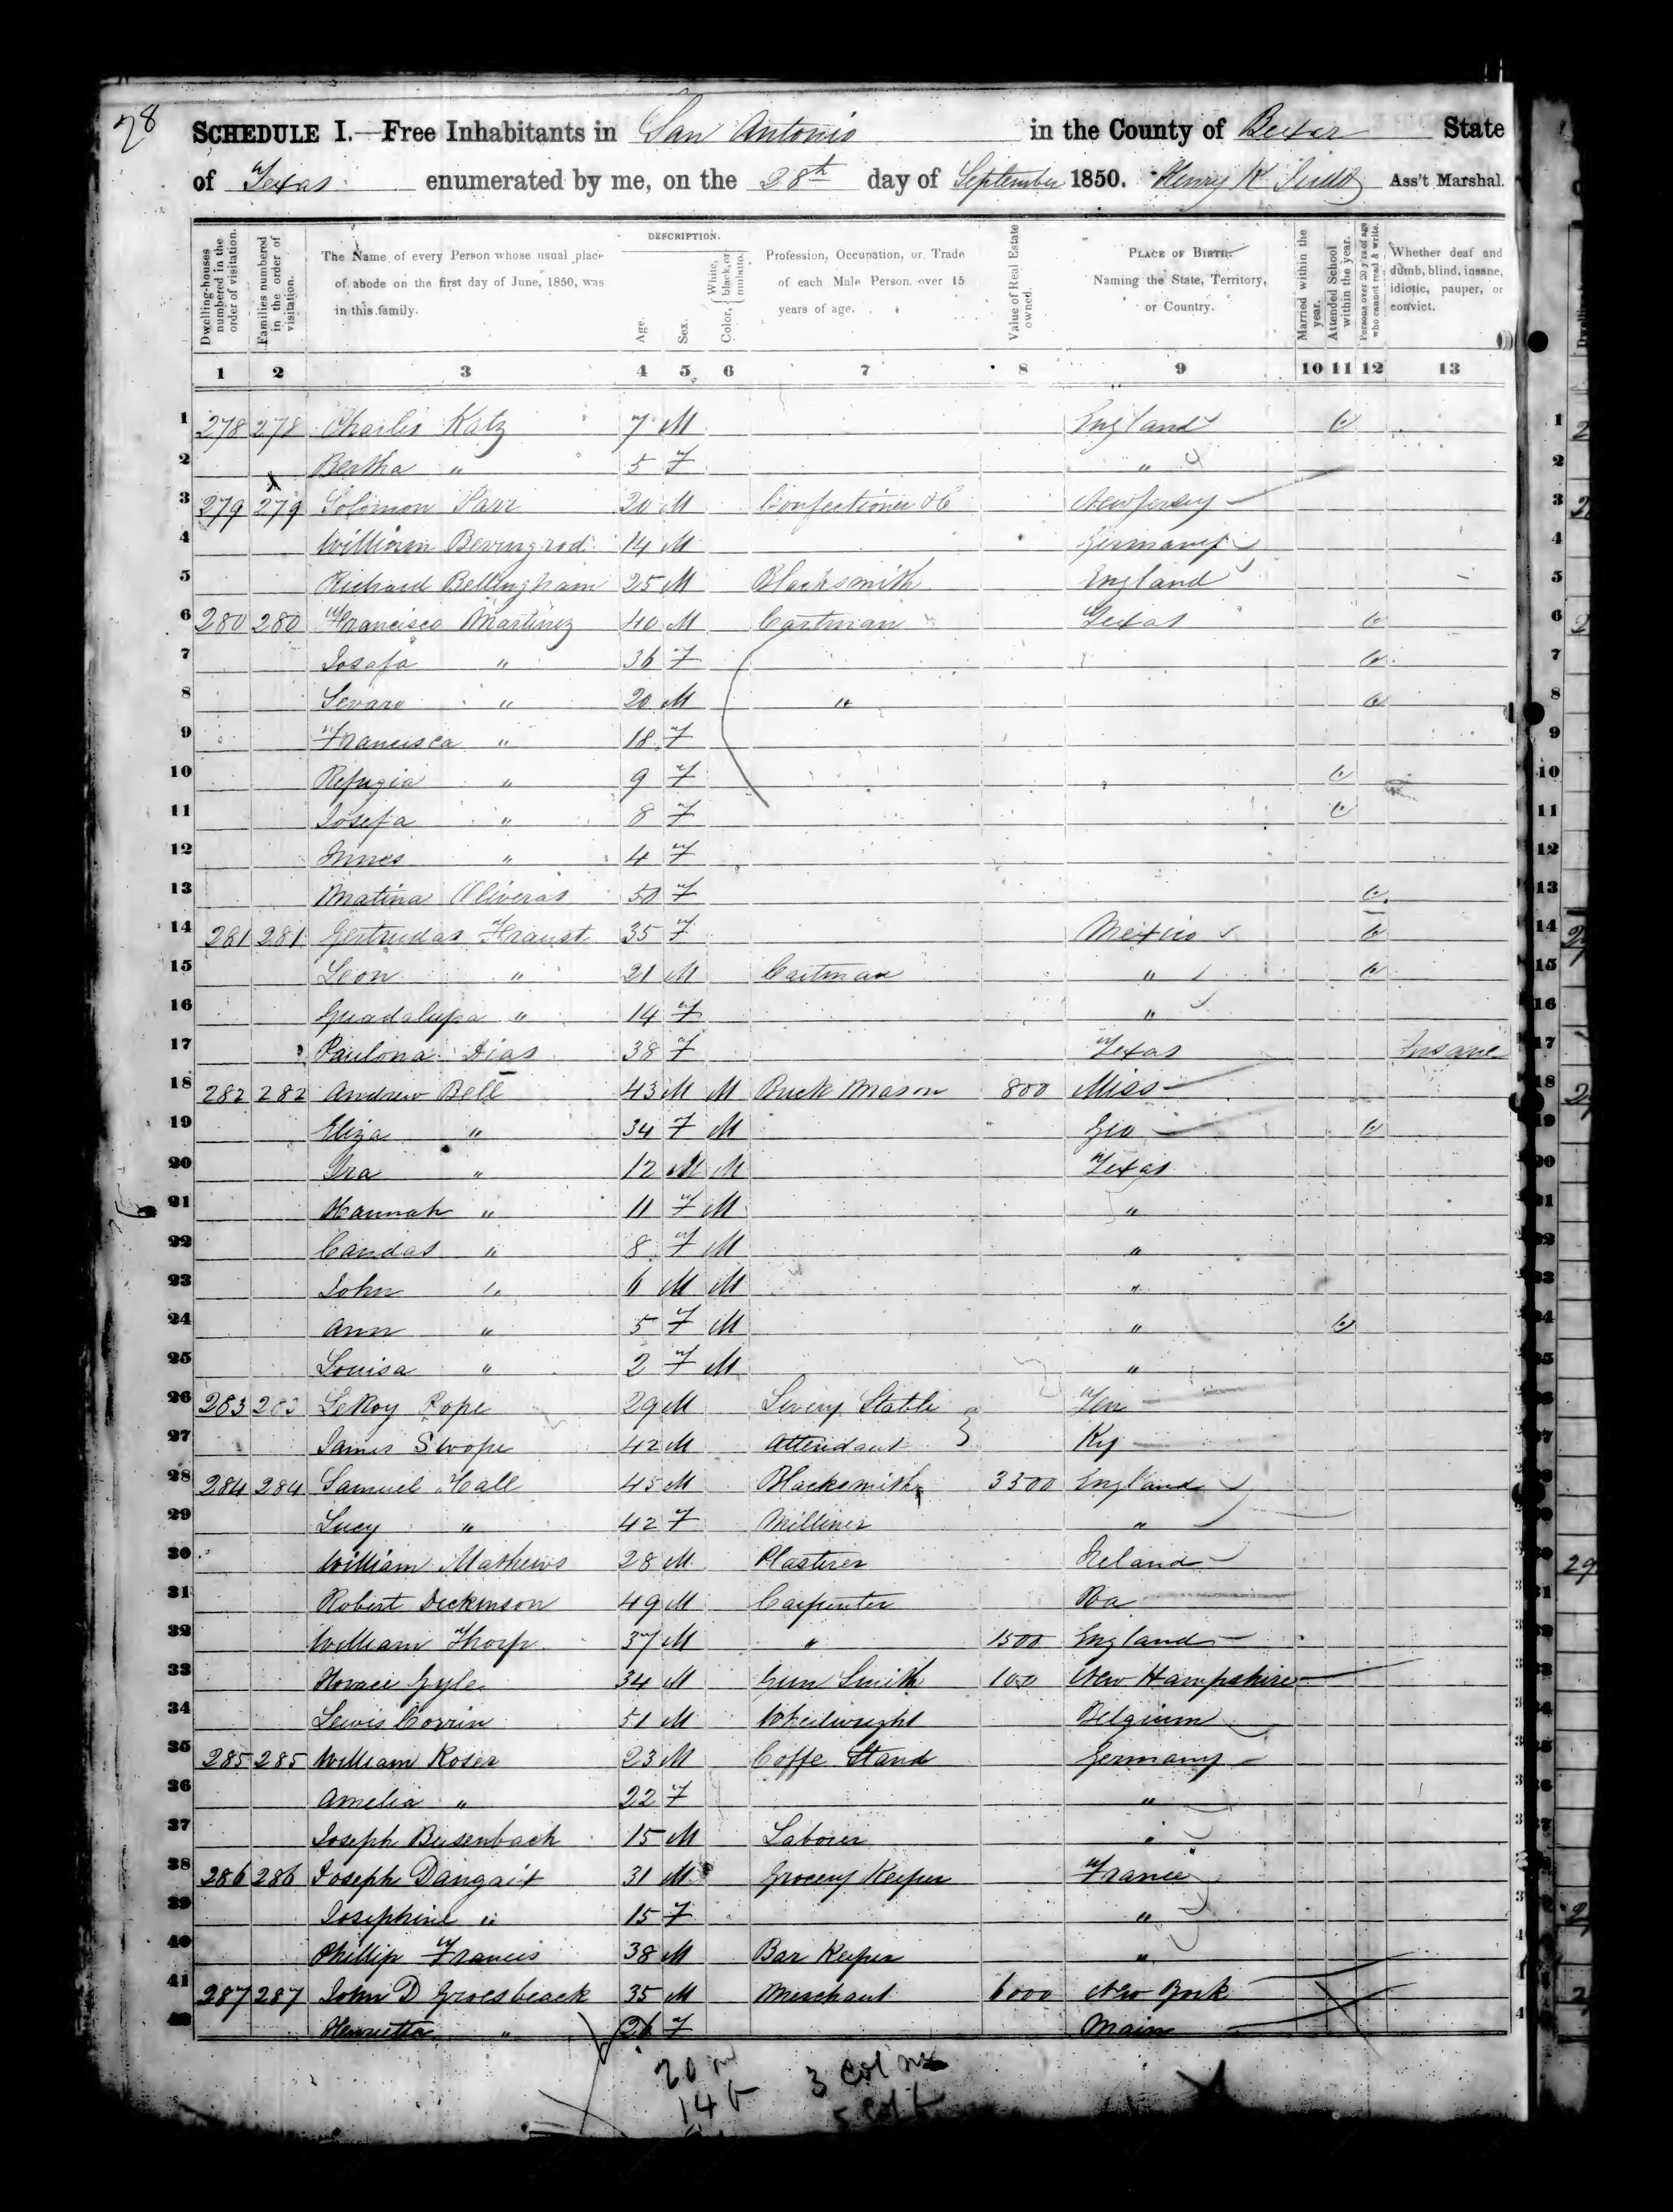 78
SCHEDULE I.—Free Inhabitants in San Antonio in the County of Bexar State
of Texas enumerated by me, on the 28th day of September 1850. Henry K Ass't Marshal.
Dwelling-houses numbered in the order of visitation.
Families numbered in the order of visitation.
The Name of every Person whose usual place of abode on the first day of June, 1850, was in this family.
DESCRIPTION.
Age.
Sex.
Color, White, black, or mulatto.
Profession, Occupation, or Trade of each Male Person over 15 years of age.
Value of Real Estate owned.
PLACE OF BIRTH. Naming the State, Territory, or Country.
Married within the year.
Attended School within the year.
Persons over 20 y'rs of age who cannot read & write.
Whether deaf and dumb, blind, insane, idiotic, pauper, or convict.
1 2 3 4 5 6 7 8 9 10 11 12 13
1 278 278 Charles Katz 7 M England 1
2 Bertha " 5 F " 2
3 279 279 Solomon Parr 20 M Confectioner &c New Jersey 3
4 William 14 M Germany 4
5 Richard Bellingham 25 M Blacksmith England 5
6 280 280 Francisco Martinez 40 M Cartman Texas 6
7 Josafa " 36 F 7
8 Sevaro " 20 M " 8
9 Francisca " 18 F 9
10 Refugia " 9 F 10
11 Josefa " 8 F 11
12 " 4 F 12
13 Matina Oliveras 50 F 13
14 281 281 Gertrudas 35 F Mexico 14
15 Leon " 21 M Cartman " 15
16 Guadalupa " 14 F " 16
17 Paulona Dias 38 F Texas Insane 17
18 282 282 Andrew Bell 43 M M Brick Mason 800 Miss 18
19 Eliza " 34 F M Geo 19
20 Ira " 12 M M Texas 20
21 Hannah " 11 F M " 21
22 Candas " 8 F M " 22
23 John " 6 M M " 23
24 Ann " 5 F M " 24
25 Louisa " 2 F M " 25
26 283 283 LeRoy Pope 29 M Livery Stable Ten 26
27 James Swope 42 M Attendant Ky 27
28 284 284 Samuel Hall 45 M Blacksmith 3500 England
29 Lucy " 42 F Milliner "
30 William Mathews 28 M Plasterer Ireland
31 Robert Dickinson 49 M Carpenter Pa
32 William Thorp 37 M " 1500 England
33 Horace Gyle 34 M Gun Smith 100 New Hampshire
34 Lewis Corrin 51 M Wheelwright Belgium
35 285 285 William Roser 23 M Coffe Stand Germany
36 Amelia " 22 F "
37 Joseph Beisenbach 15 M Laborer "
38 286 286 Joseph Dangait 31 M Grocery Keeper France
39 Josephine " 15 F "
40 Phillip Francis 38 M Bar Keeper "
41 287 287 John D Groesbeack 35 M Merchant 6000 New York
Henrietta " 26 F Main
20 m 3 Col m
14 f 5 Col f